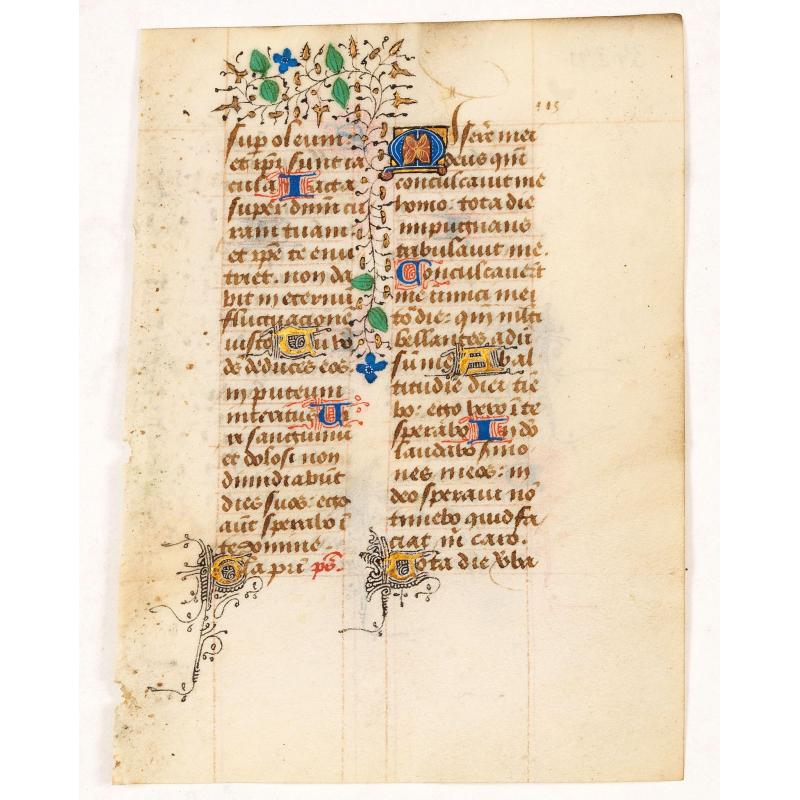 sup oleum:
et ip̄i sunt ia
cula Iacta
super dn̄m cu
ram tuam:
et ip̄e te enu
triet. non da
bit in eternū
fluctuacionē
iusto Tu vo
de deduces eos
in puteum
interitus Ui
ri sanguinū
et dolosi non
dimidiabūt
dies suos: ego
aūt sperabo ī
te domine.
G̅la pr̄i ps̄.
Miserē mei
deus qm̄
conculcavit me
homo: tota die
impugnans
tribulavit me.
Conculcaverūt
me inimici mei
tō die: qm̄ m̄lti
bellantes adū
sū me Ab al
titudīe diei tīe
bo: ego vero ī te
sperabo In dō
laudabo smo
nes meos: in
deo speravi nō
timebo quid fa
ciat m̄ caro.
Tota die v̄ba
115